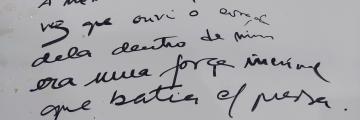 vez que ouvi o
dela dentro de mim
era uma força incrível
que batia c/ pressa.